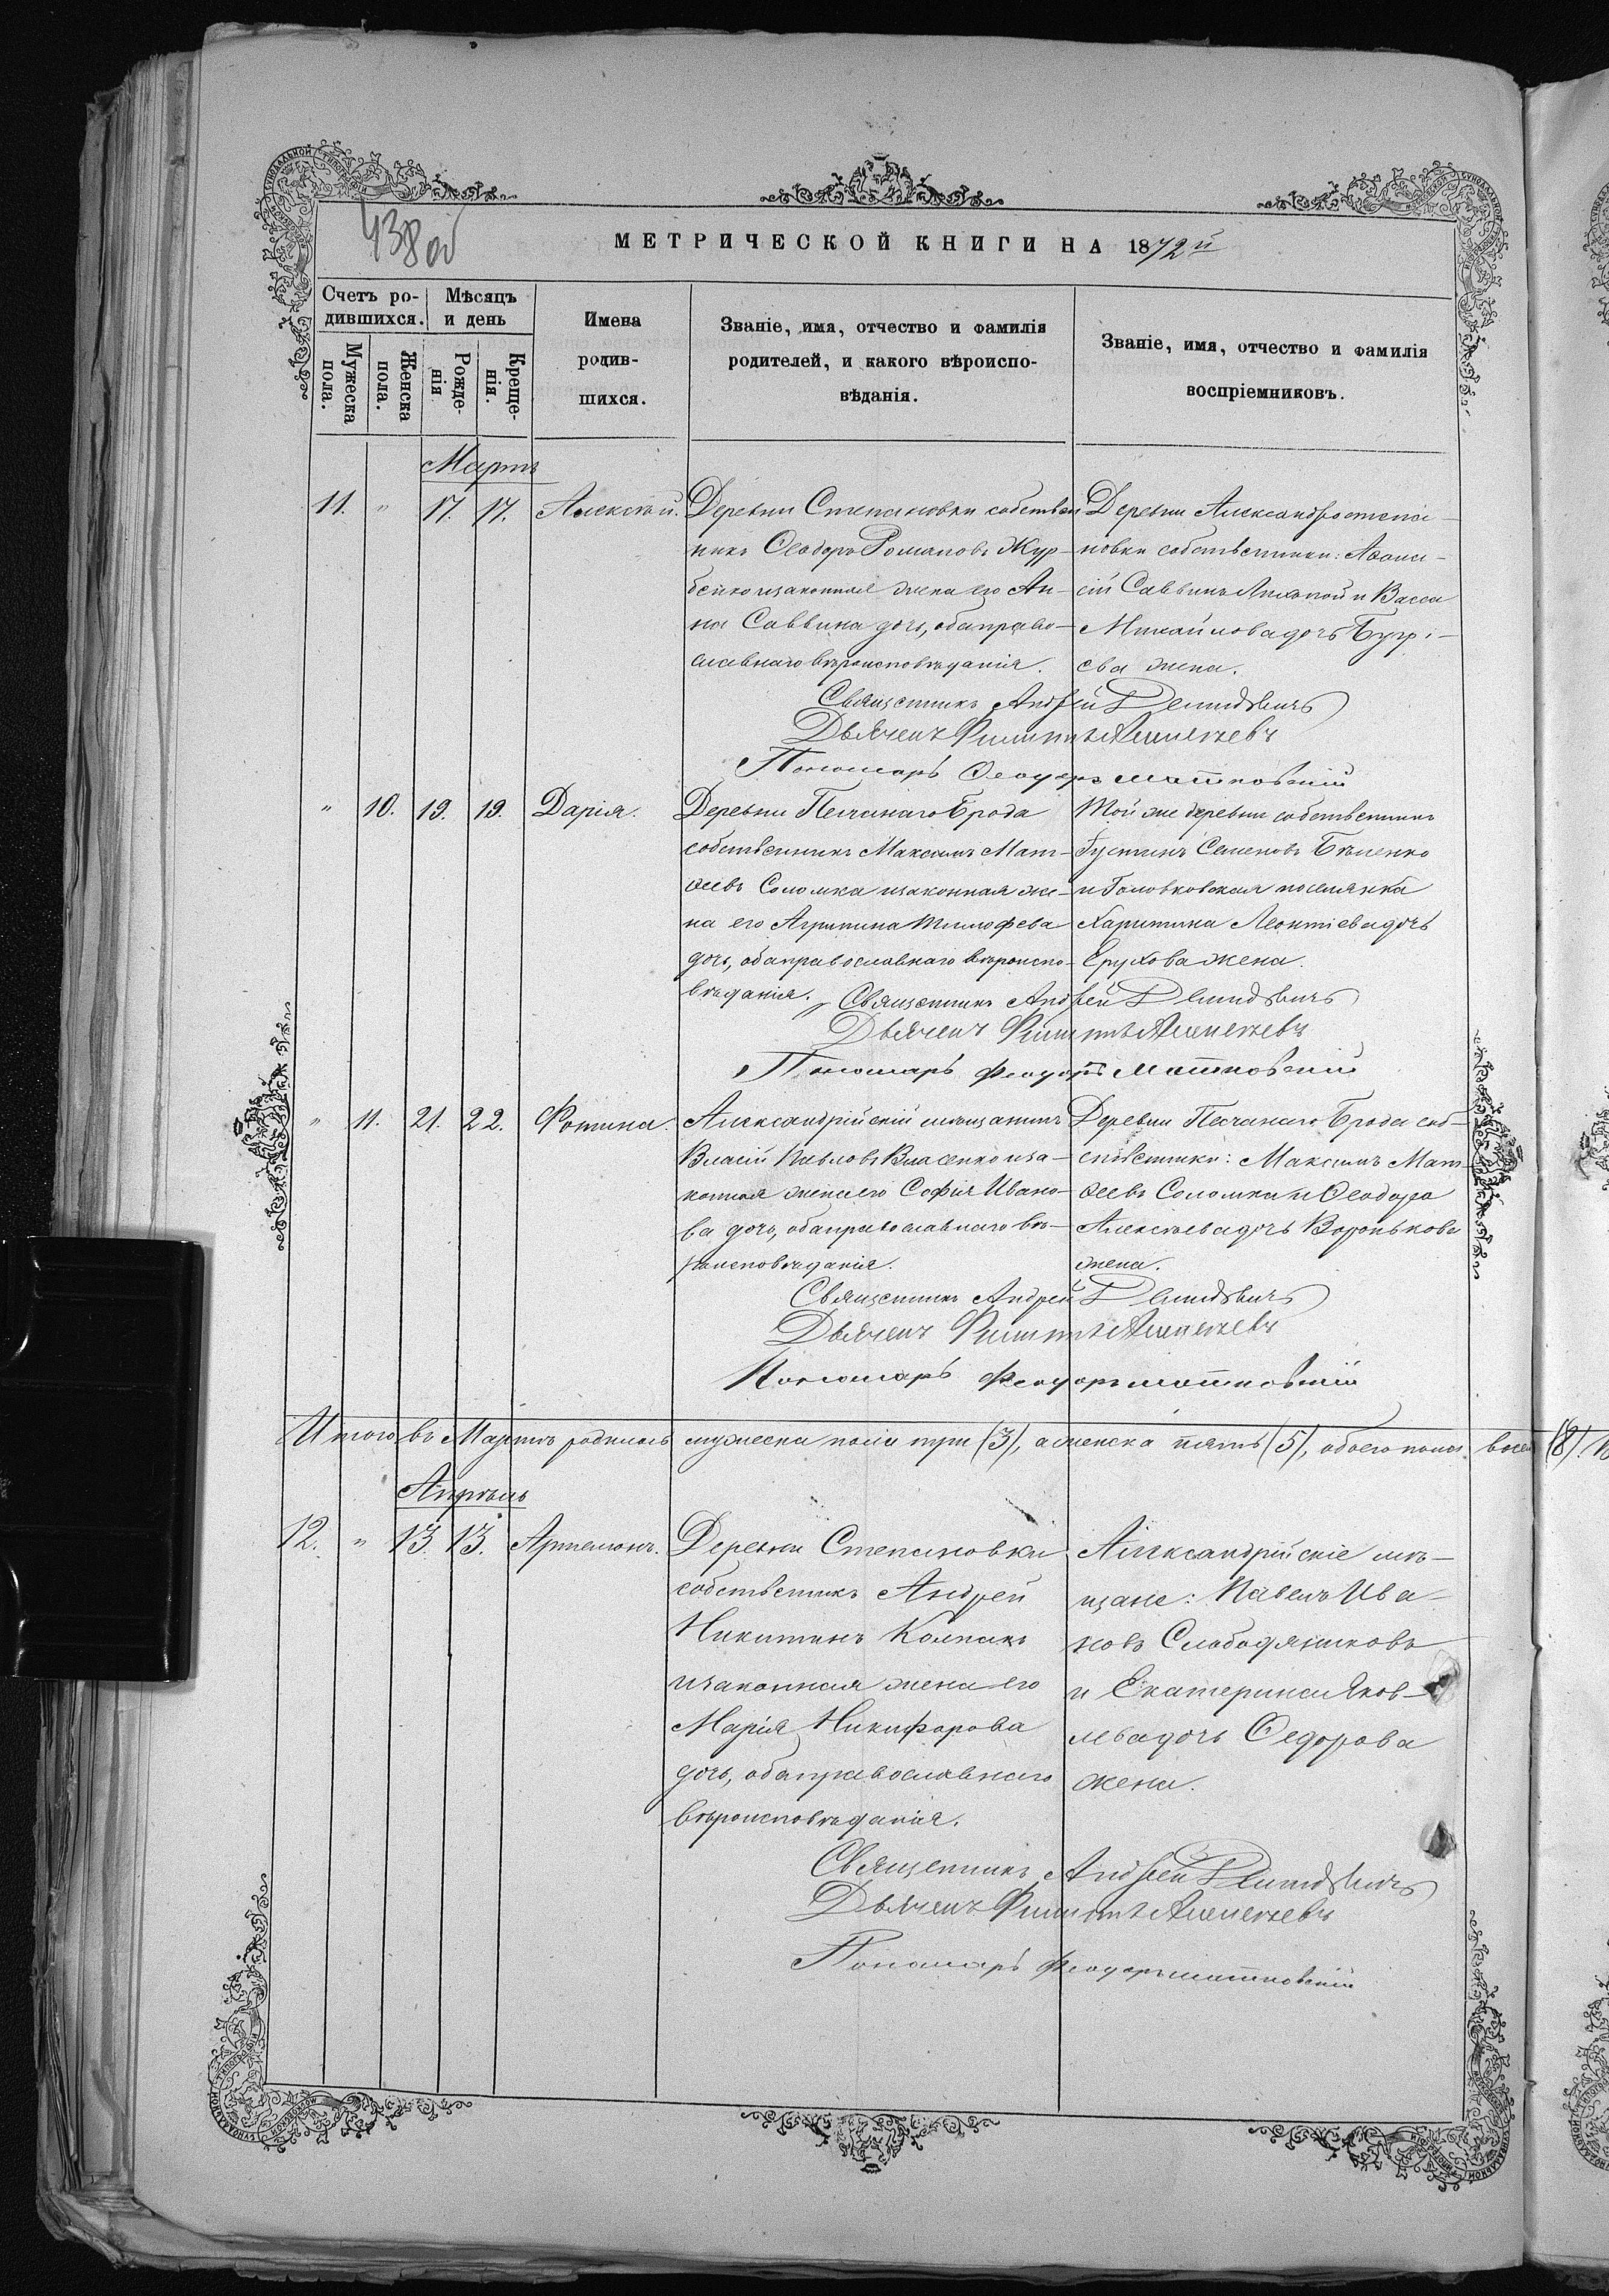 438 об
МЕТРИЧЕСКОЙ КНИГИ НА 1872й
Счетъ ро-
дившихся.
Мѣсяцъ
и день
Мужеска
пола.
Женска
пола.
Рожде-
нія
Креще-
нія.
Имена
родив-
шихся.
Званіе, имя, отчество и фамилія
родителей, и какого вѣроиспо-
вѣданія.
Званіе, имя, отчество и фамилія
воспріемниковъ.
Мартъ
11. " 17. 17. Алексѣй.
Деревни Степановки собствен
никъ Ѳеодоръ Романовъ Жур-
бенко и законная жена его Ан-
на Саввина дочь, оба право-
славнаго вѣроисповѣданія.
Деревни Александростепа-
новки собственники: Аѳана-
сій Саввинъ и Васса
Михайлова дочь
ева жена.
Священникъ Андрей Демидовичъ
Дьячекъ Филиппъ
Пономарь Ѳеодоръ Матковскій
" 10. 19. 19. Дарія.
Деревни Песчанаго Брода
собственникъ Максимъ Мат-
ѳеевъ Соломка и законная же-
на его Агрипина Тимофеева
дочь, оба православнаго вѣроиспо-
вѣданія.
Той же деревни собственникъ
Густинъ Семеновъ Бѣленко
и Головковская поселянка
Харитина Леонтіева дочь
Ерухова жена.
Священникъ Андрей Демидовичъ
Дьячекъ Филиппъ
Пономарь Феодоръ Матковскій
" 11. 21. 22. Фотина.
Александрійскій мѣщанинъ
Власій Павловъ Власенко и за-
конная жена его Софія Ивано-
ва дочь, оба православнаго вѣ-
роисповѣданія.
Деревни Песчанаго Брода соб-
ственники: Максимъ Мат-
ѳеевъ Соломка и Ѳеодора
Алексѣева дочь Воронькова
жена.
Священникъ Андрей Демидовичъ
Дьячекъ Филиппъ
Пономарь Феодоръ Матковскій
Итого въ Мартѣ родилось мужеска пола три (3), а женска пять (5), обоего пола восемь (8).
Апрѣль
12. " 13. 13. Артемонъ.
Деревни Степановки
собственникъ Андрей
Никитинъ Колпакъ
и законная жена его
Марія Никифорова
дочь, оба православнаго
вѣроисповѣданія.
Александрійскіе мѣ-
щане: Павелъ Ива-
новъ Слободяниковъ
и Екатерина Яков-
лева дочь Ѳедорова
жена.
Священникъ Андрей Демидовичъ
Дьячекъ Филиппъ
Пономарь Феодоръ Матковскій